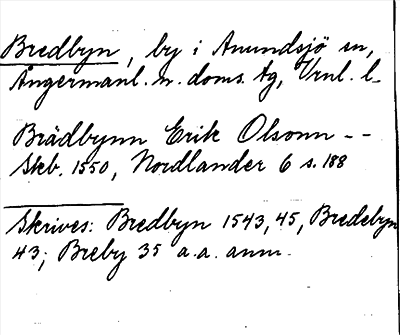 Bredbyn, by i Anundsjö sn,
Ångermanl. n. doms. tg, Vnl. l.
Brädbynn Erik Olsonn - -
Skb. 1550, Nordlander 6 s. 188
Skrives: Bredbyn 1543, 45, Bredebyn
43; Breby 35 a.a. anm.